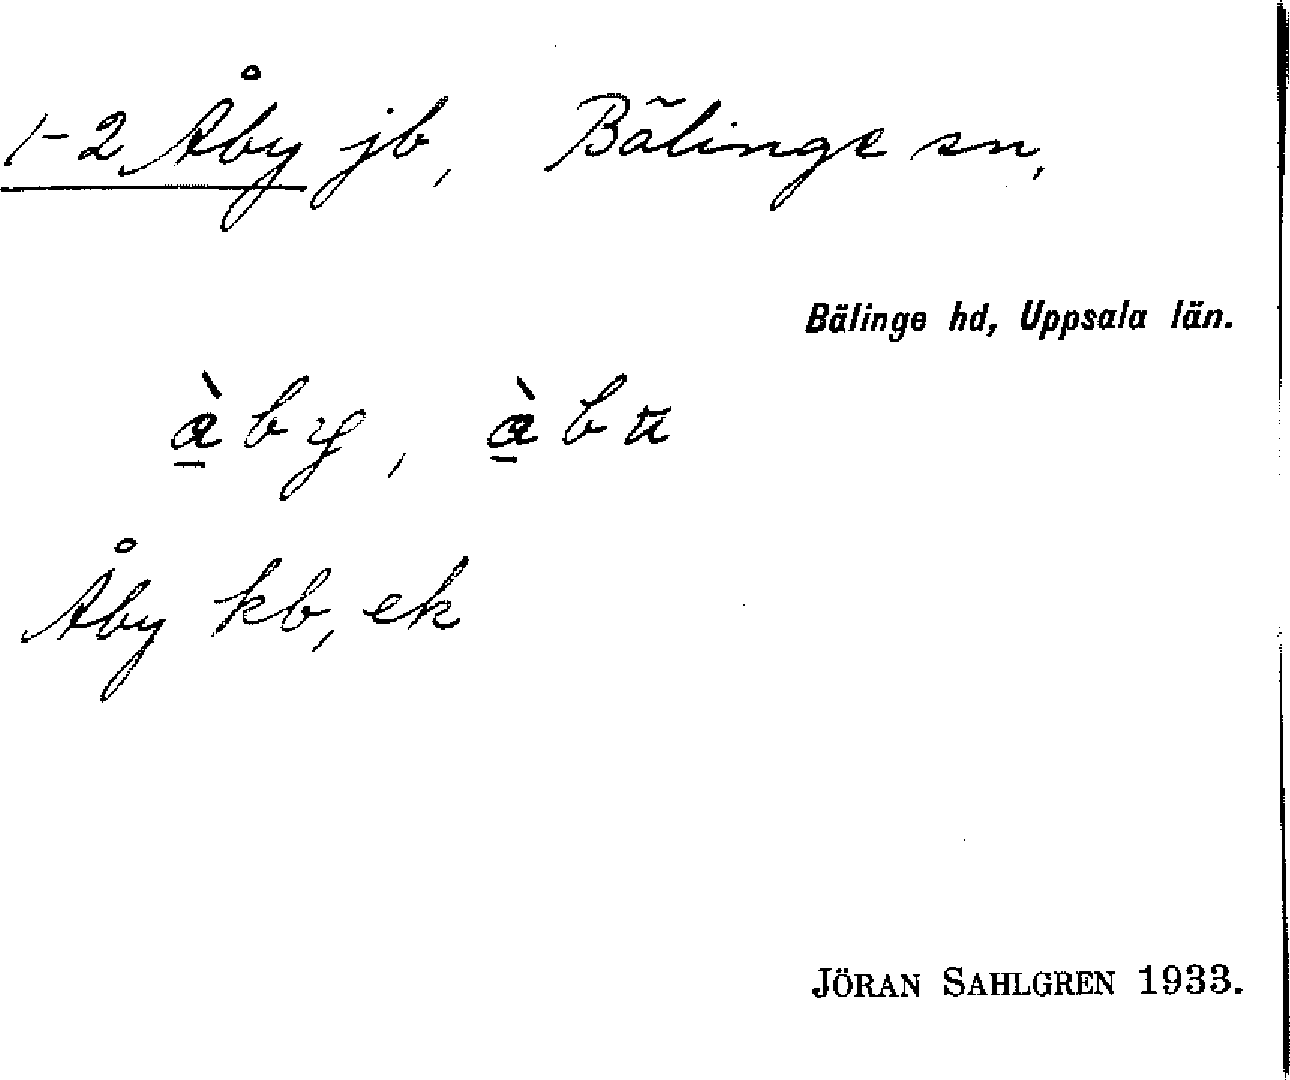 1-2 Åby jb, Bälinge sn,
Bälinge hd, Uppsala län.
à̱ by, à̱ bu
Åby kb, ek
JÖRAN SAHLGREN 1933.